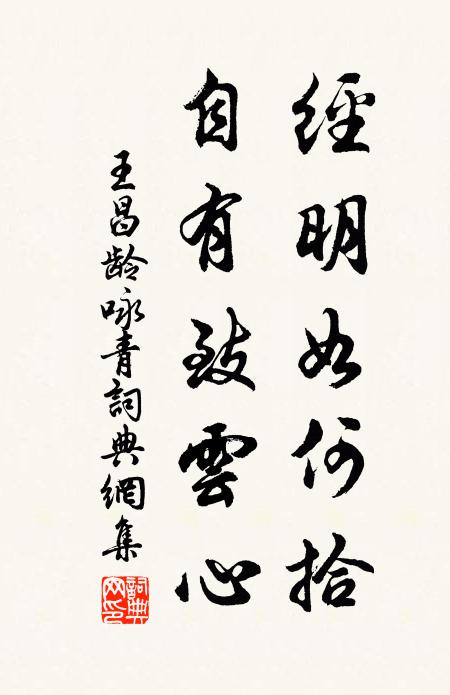 經明如何拾
自有致雲心
王昌龄咏青詞典網集
詞典网印